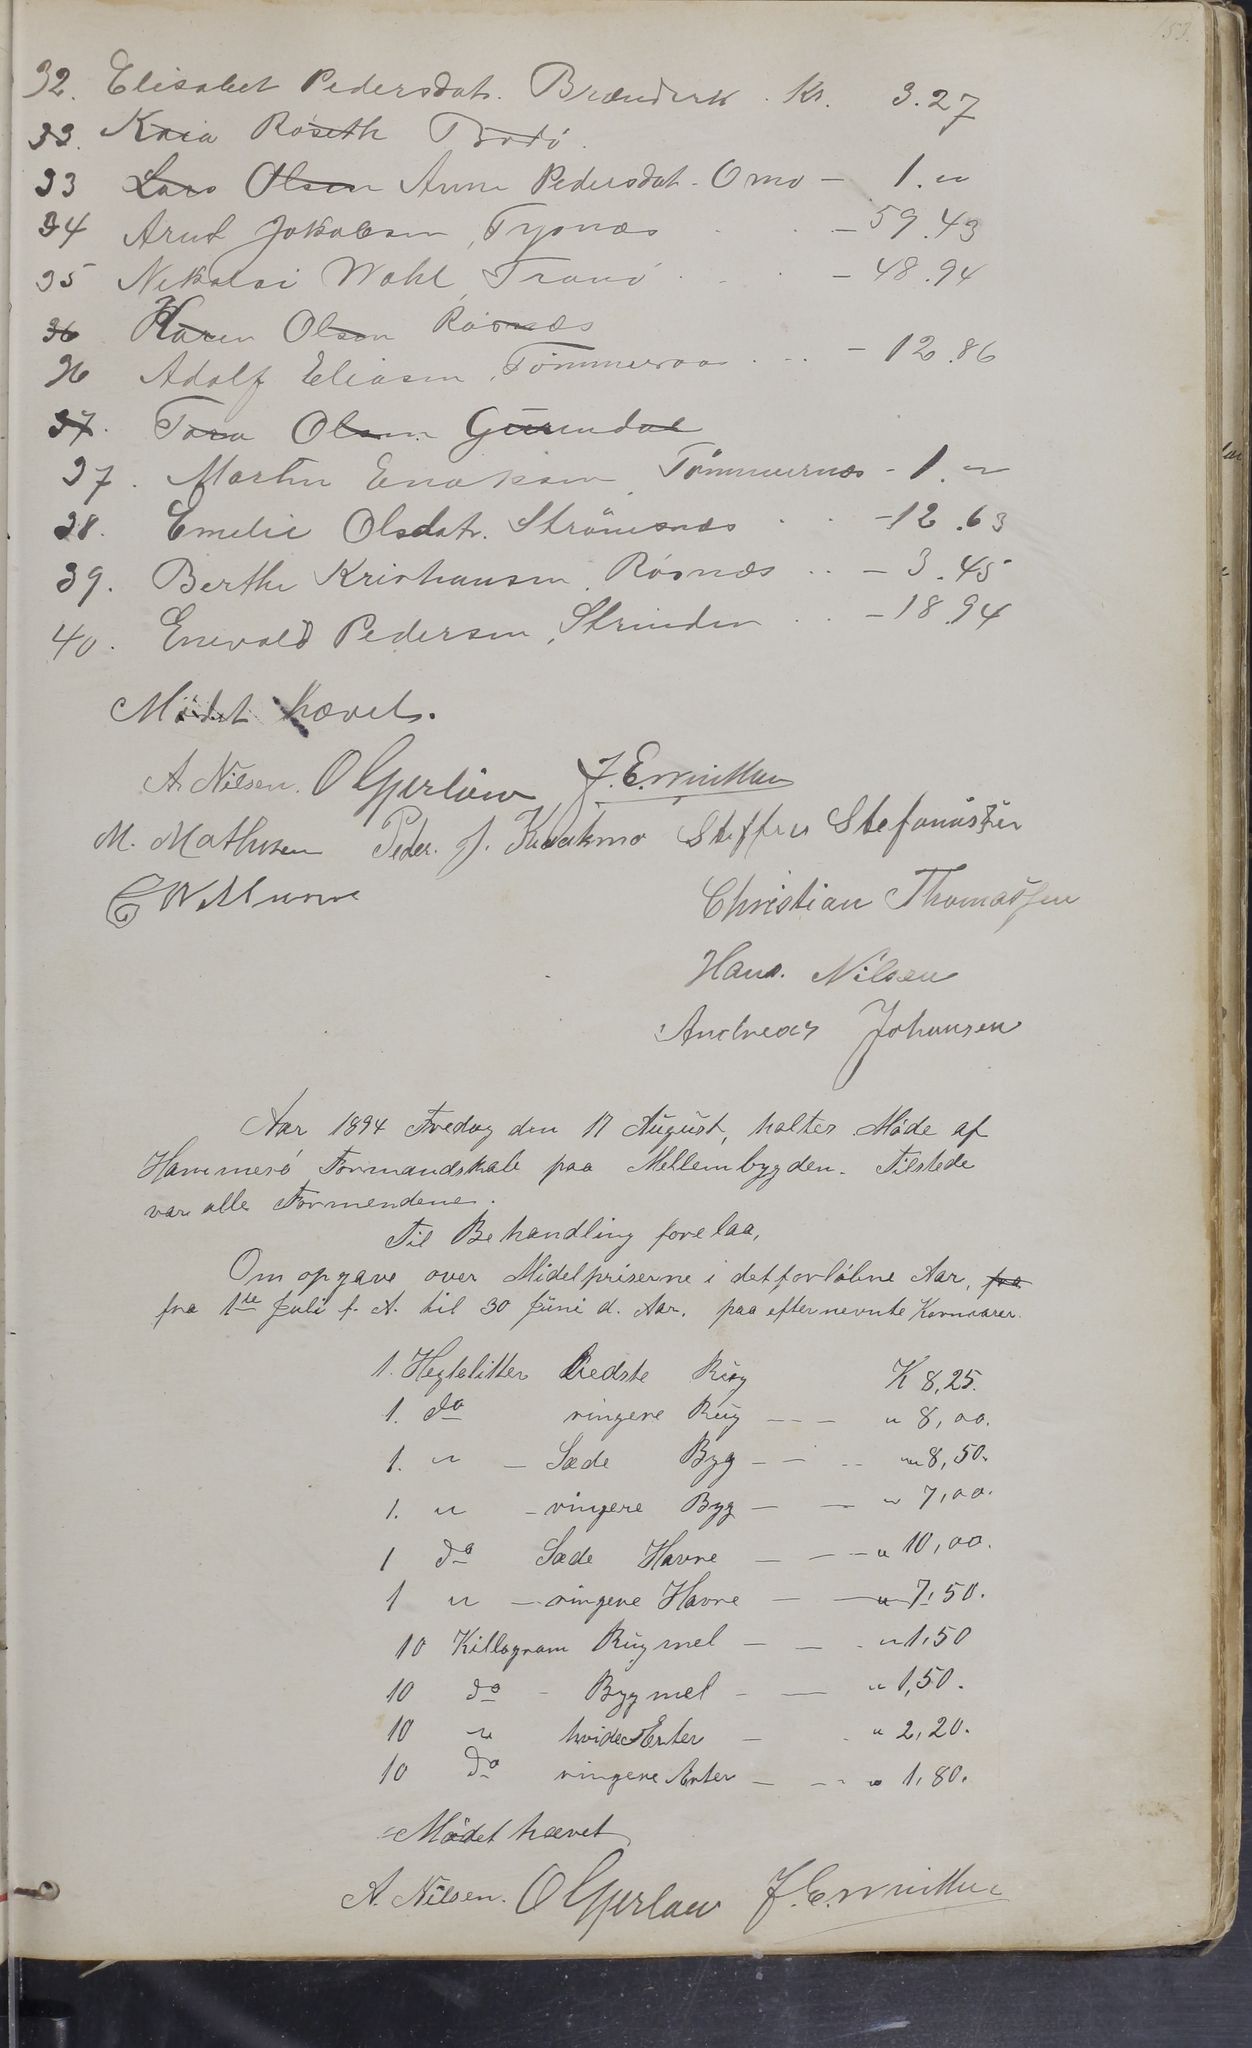 53.
32. Elisabet Pedersdatr. Brændvik. Kr. 3.27
33. Kaia Röseth Bodö.
33 Lars Olsen Anne Pedersdat. Omo - 1. "
34 Arnt Jakobsen, Tysnæs - 59.43
35 Nikolai Wahl, Tranö - 48.94
36 Karen Olsen Rösnæs
36 Adolf Eliasen, Tömmeraas - 12.86
37. Tara Olsen
37. Martin Enoksen, Tömmernæs - 1. "
38. Emelie Olsdatr. Strömsnæs - 12.63
39. Berthe Kristiansen, Rösnæs - 3.45
40. Enevold Pedersen, Strinden - 18.94
Mödet hævet.
A. Nilsen. O Gjerlöw J. E.
M. Mathisen Peder. J. Steffen Stefanussen
Christian Thomassen
Hans. Nilsen
Andreas Johansen
Aar 1894 Fredag den 17 August, holtes Möde af
Hammerö Formandskab paa Mellembygden. Tilstede
var alle Formendene.
Til Behandling forelaa,
Om opgave over Midelpriserne i det forlöbne Aar, fra
fra 1te Juli f. A. til 30 Juni d. Aar. paa efternevnte Kornvarer.
1. Hegtolitter Bedste Rug K 8,25.
1. do ringere Rug - - - " 8,00.
1. " - Sæde Byg - - - " 8,50.
1. " - ringere Byg - - " 7,00.
1 do Sæde Havre - - - " 10,00.
1 " - ringere Havre - - " 7,50.
10 Killogram Rugmel - - - " 1,50
10 do - Bygmel - - " 1,50.
10 " hvide Erter - - " 2,20.
10 do ringere Erter - - - " 1,80.
Mödet hævet
A. Nilsen. O Gjerlöw J. E.